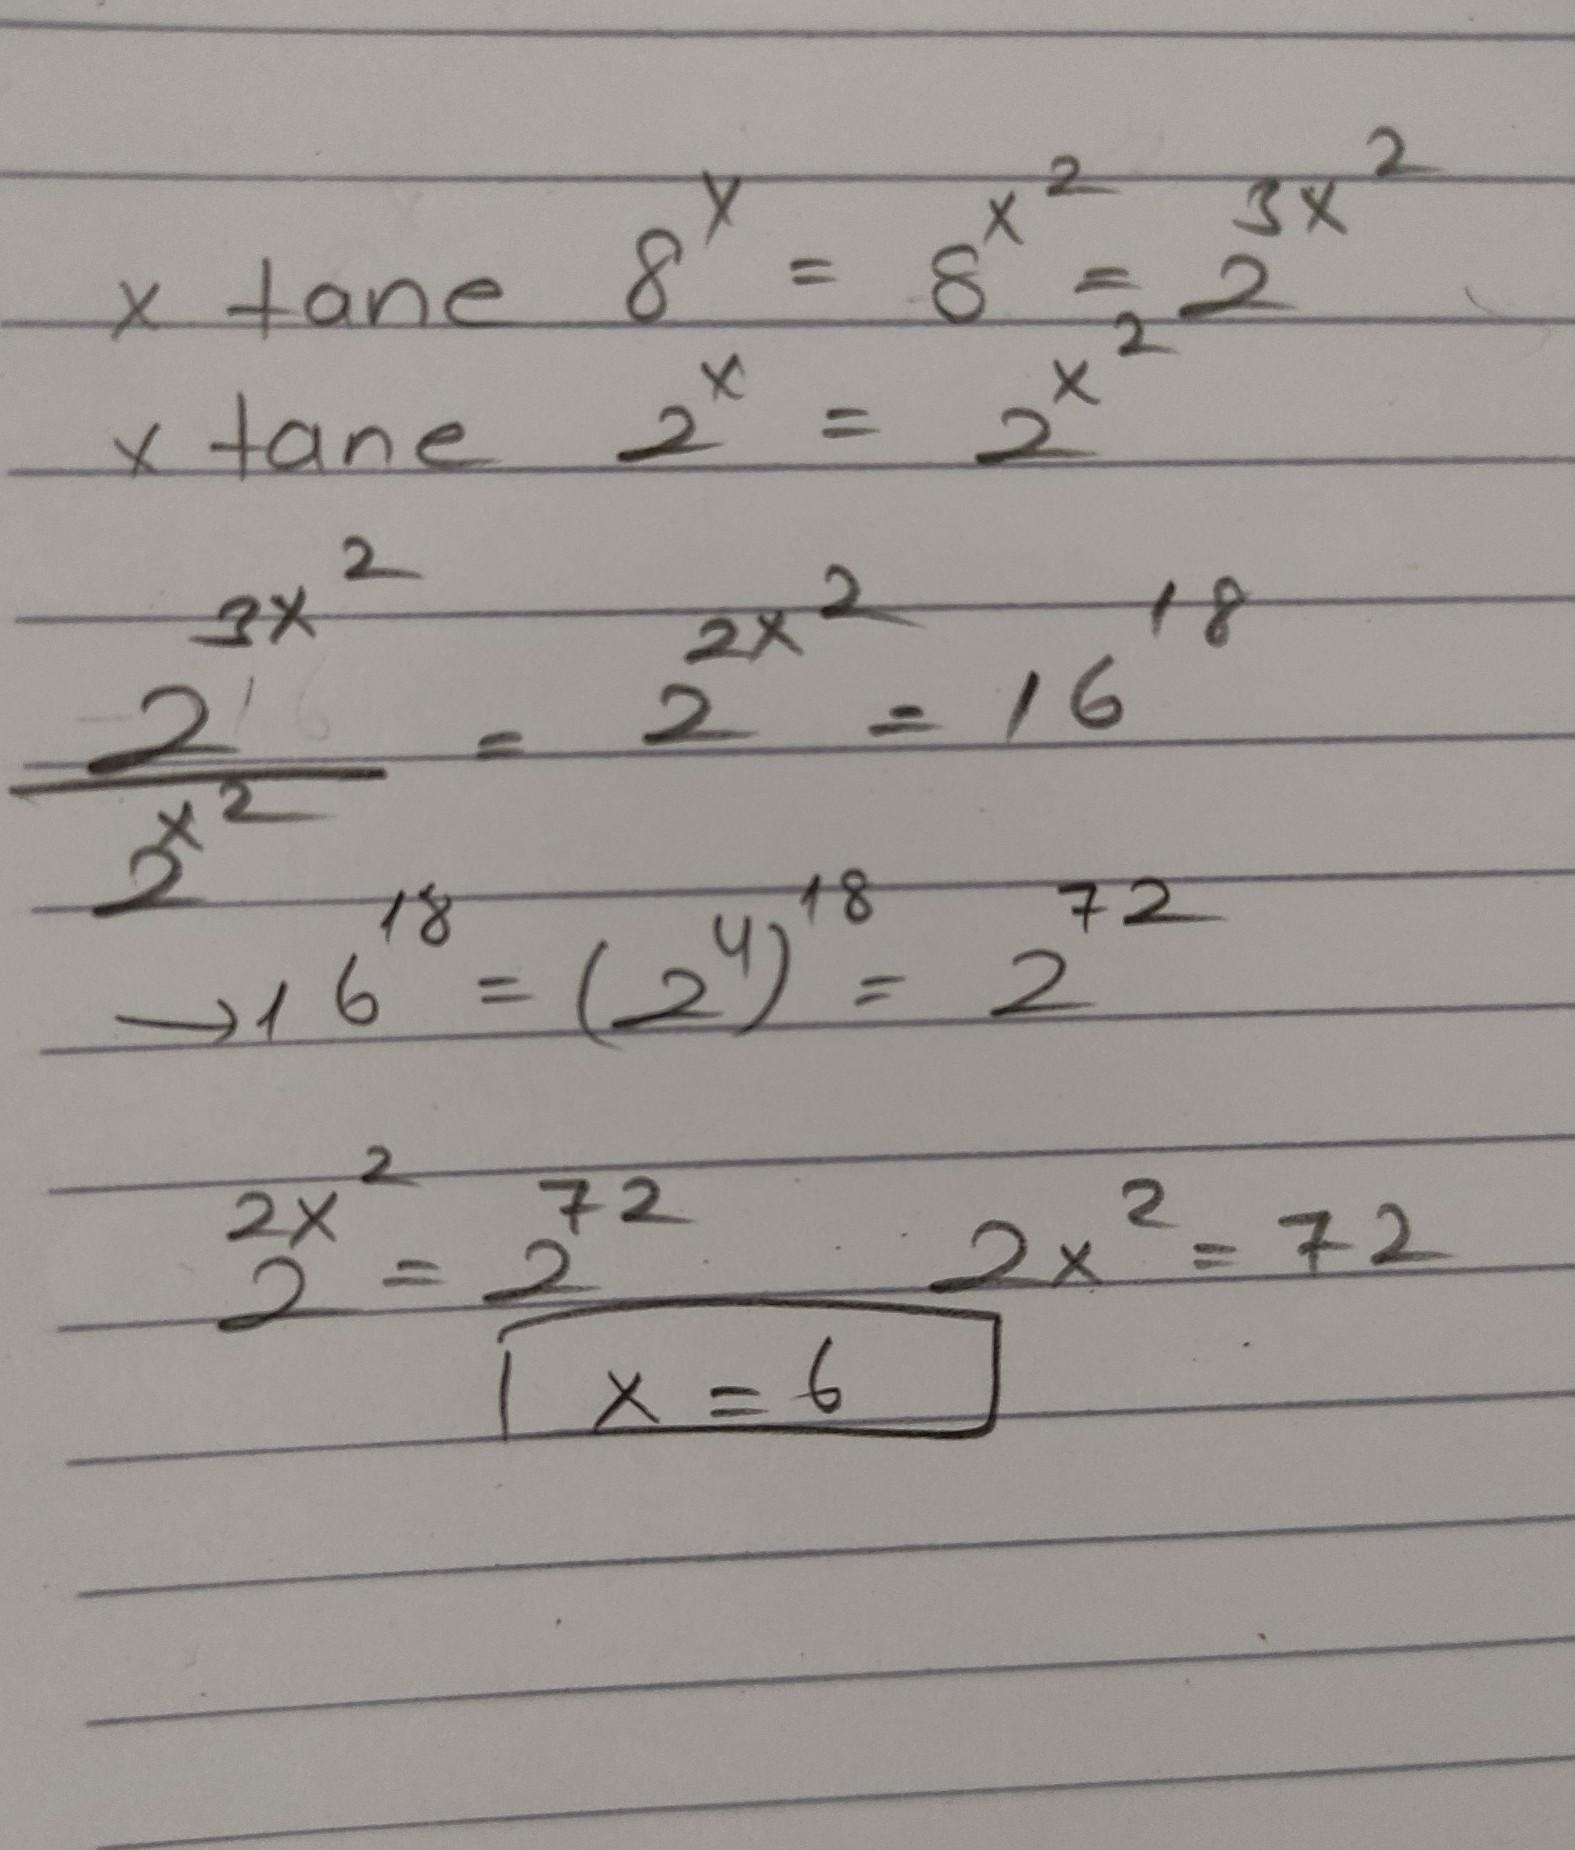 x tane 8^x = 8^x^2 = 2^3x^2
x tane 2^x = 2^x^2
2^3x^2 / 2^x^2 = 2^2x^2 = 16^18
→ 16^18 = (2^4)^18 = 2^72
2^2x^2 = 2^72 2x^2 = 72
x = 6